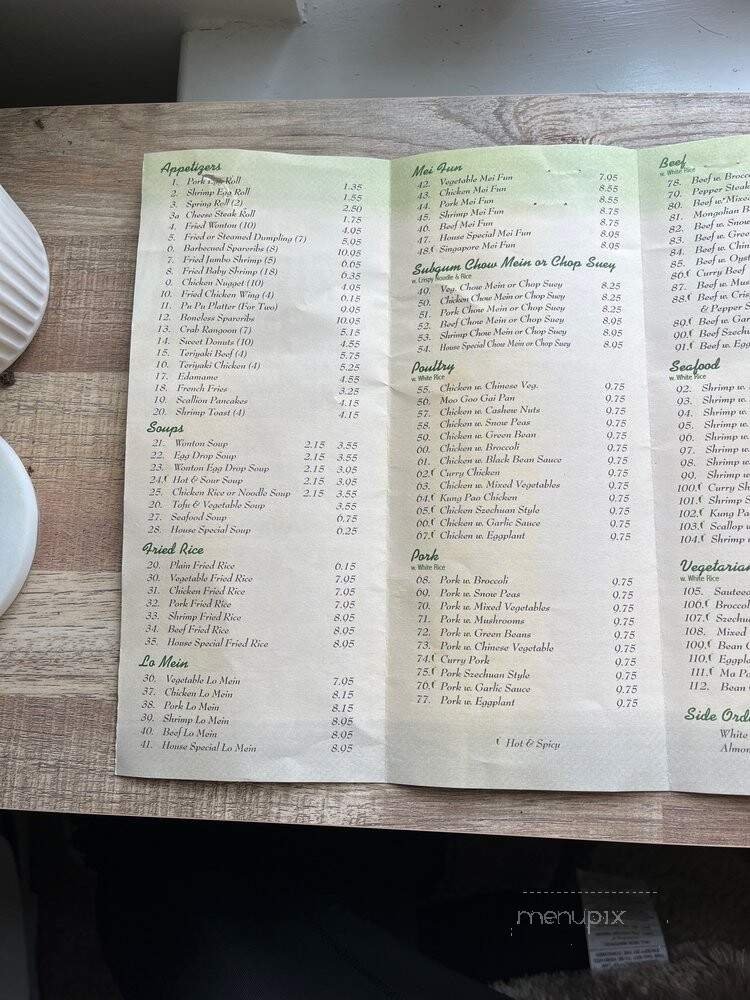 Appetizers
1. Pork Egg Roll 1.35
2. Shrimp Egg Roll 1.55
3. Spring Roll (2) 2.50
3a Cheese Steak Roll 1.75
4. Fried Wonton (10) 4.95
5. Fried or Steamed Dumpling (7) 5.95
6. Barbecued Spareribs (8) 10.95
7. Fried Jumbo Shrimp (5) 6.65
8. Fried Baby Shrimp (18) 6.35
9. Chicken Nugget (10) 4.95
10. Fried Chicken Wing (4) 6.15
11. Pu Pu Platter (For Two) 9.95
12. Boneless Spareribs 10.95
13. Crab Rangoon (7) 5.15
14. Sweet Donuts (10) 4.55
15. Teriyaki Beef (4) 5.75
16. Teriyaki Chicken (4) 5.25
17. Edamame 4.55
18. French Fries 3.25
19. Scallion Pancakes 4.15
20. Shrimp Toast (4) 4.15
Soups
21. Wonton Soup 2.15 3.55
22. Egg Drop Soup 2.15 3.55
23. Wonton Egg Drop Soup 2.15 3.95
24. Hot & Sour Soup 2.15 3.55
25. Chicken Rice or Noodle Soup 2.15 3.55
26. Tofu & Vegetable Soup 3.55
27. Seafood Soup 6.75
28. House Special Soup 6.25
Fried Rice
29. Plain Fried Rice 6.15
30. Vegetable Fried Rice 7.95
31. Chicken Fried Rice 7.95
32. Pork Fried Rice 7.95
33. Shrimp Fried Rice 8.95
34. Beef Fried Rice 8.95
35. House Special Fried Rice 8.95
Lo Mein
36. Vegetable Lo Mein 7.95
37. Chicken Lo Mein 8.15
38. Pork Lo Mein 8.15
39. Shrimp Lo Mein 8.95
40. Beef Lo Mein 8.95
41. House Special Lo Mein 8.95
Mei Fun
42. Vegetable Mei Fun 7.95
43. Chicken Mei Fun 8.55
44. Pork Mei Fun 8.55
45. Shrimp Mei Fun 8.75
46. Beef Mei Fun 8.75
47. House Special Mei Fun 8.95
48. Singapore Mei Fun 8.95
Subgum Chow Mein or Chop Suey
w. Crispy Noodle & Rice
49. Veg. Chow Mein or Chop Suey 8.25
50. Chicken Chow Mein or Chop Suey 8.25
51. Pork Chow Mein or Chop Suey 8.25
52. Beef Chow Mein or Chop Suey 8.95
53. Shrimp Chow Mein or Chop Suey 8.95
54. House Special Chow Mein or Chop Suey 8.95
Poultry
w. White Rice
55. Chicken w. Chinese Veg. 9.75
56. Moo Goo Gai Pan 9.75
57. Chicken w. Cashew Nuts 9.75
58. Chicken w. Snow Peas 9.75
59. Chicken w. Green Bean 9.75
60. Chicken w. Broccoli 9.75
61. Chicken w. Black Bean Sauce 9.75
62. Curry Chicken 9.75
63. Chicken w. Mixed Vegetables 9.75
64. Kung Pao Chicken 9.75
65. Chicken Szechuan Style 9.75
66. Chicken w. Garlic Sauce 9.75
67. Chicken w. Eggplant 9.75
Pork
w. White Rice
68. Pork w. Broccoli 9.75
69. Pork w. Snow Peas 9.75
70. Pork w. Mixed Vegetables 9.75
71. Pork w. Mushrooms 9.75
72. Pork w. Green Beans 9.75
73. Pork w. Chinese Vegetable 9.75
74. Curry Pork 9.75
75. Pork Szechuan Style 9.75
76. Pork w. Garlic Sauce 9.75
77. Pork w. Eggplant 9.75
Hot & Spicy
Beef
w. White Rice
78. Beef w. Brocc
79. Pepper Steak
80. Beef w. Mixed
81. Mongolian B
82. Beef w. Snow
83. Beef w. Gree
84. Beef w. Chin
85. Beef w. Oyst
86. Curry Beef
87. Beef w. Mus
88. Beef w. Cris
& Pepper S
89. Beef w. Gar
90. Beef Szechu
91. Beef w. Egg
Seafood
w. White Rice
92. Shrimp w.
93. Shrimp w.
94. Shrimp w.
95. Shrimp w.
96. Shrimp w.
97. Shrimp w.
98. Shrimp w.
99. Shrimp w.
100. Curry Sh
101. Shrimp S
102. Kung Pa
103. Scallop w
104. Shrimp w
Vegetarian
w. White Rice
105. Sauteed
106. Broccol
107. Szechu
108. Mixed
109. Bean C
110. Eggpla
111. Ma Po
112. Bean
Side Ord
White
Almon
menupix